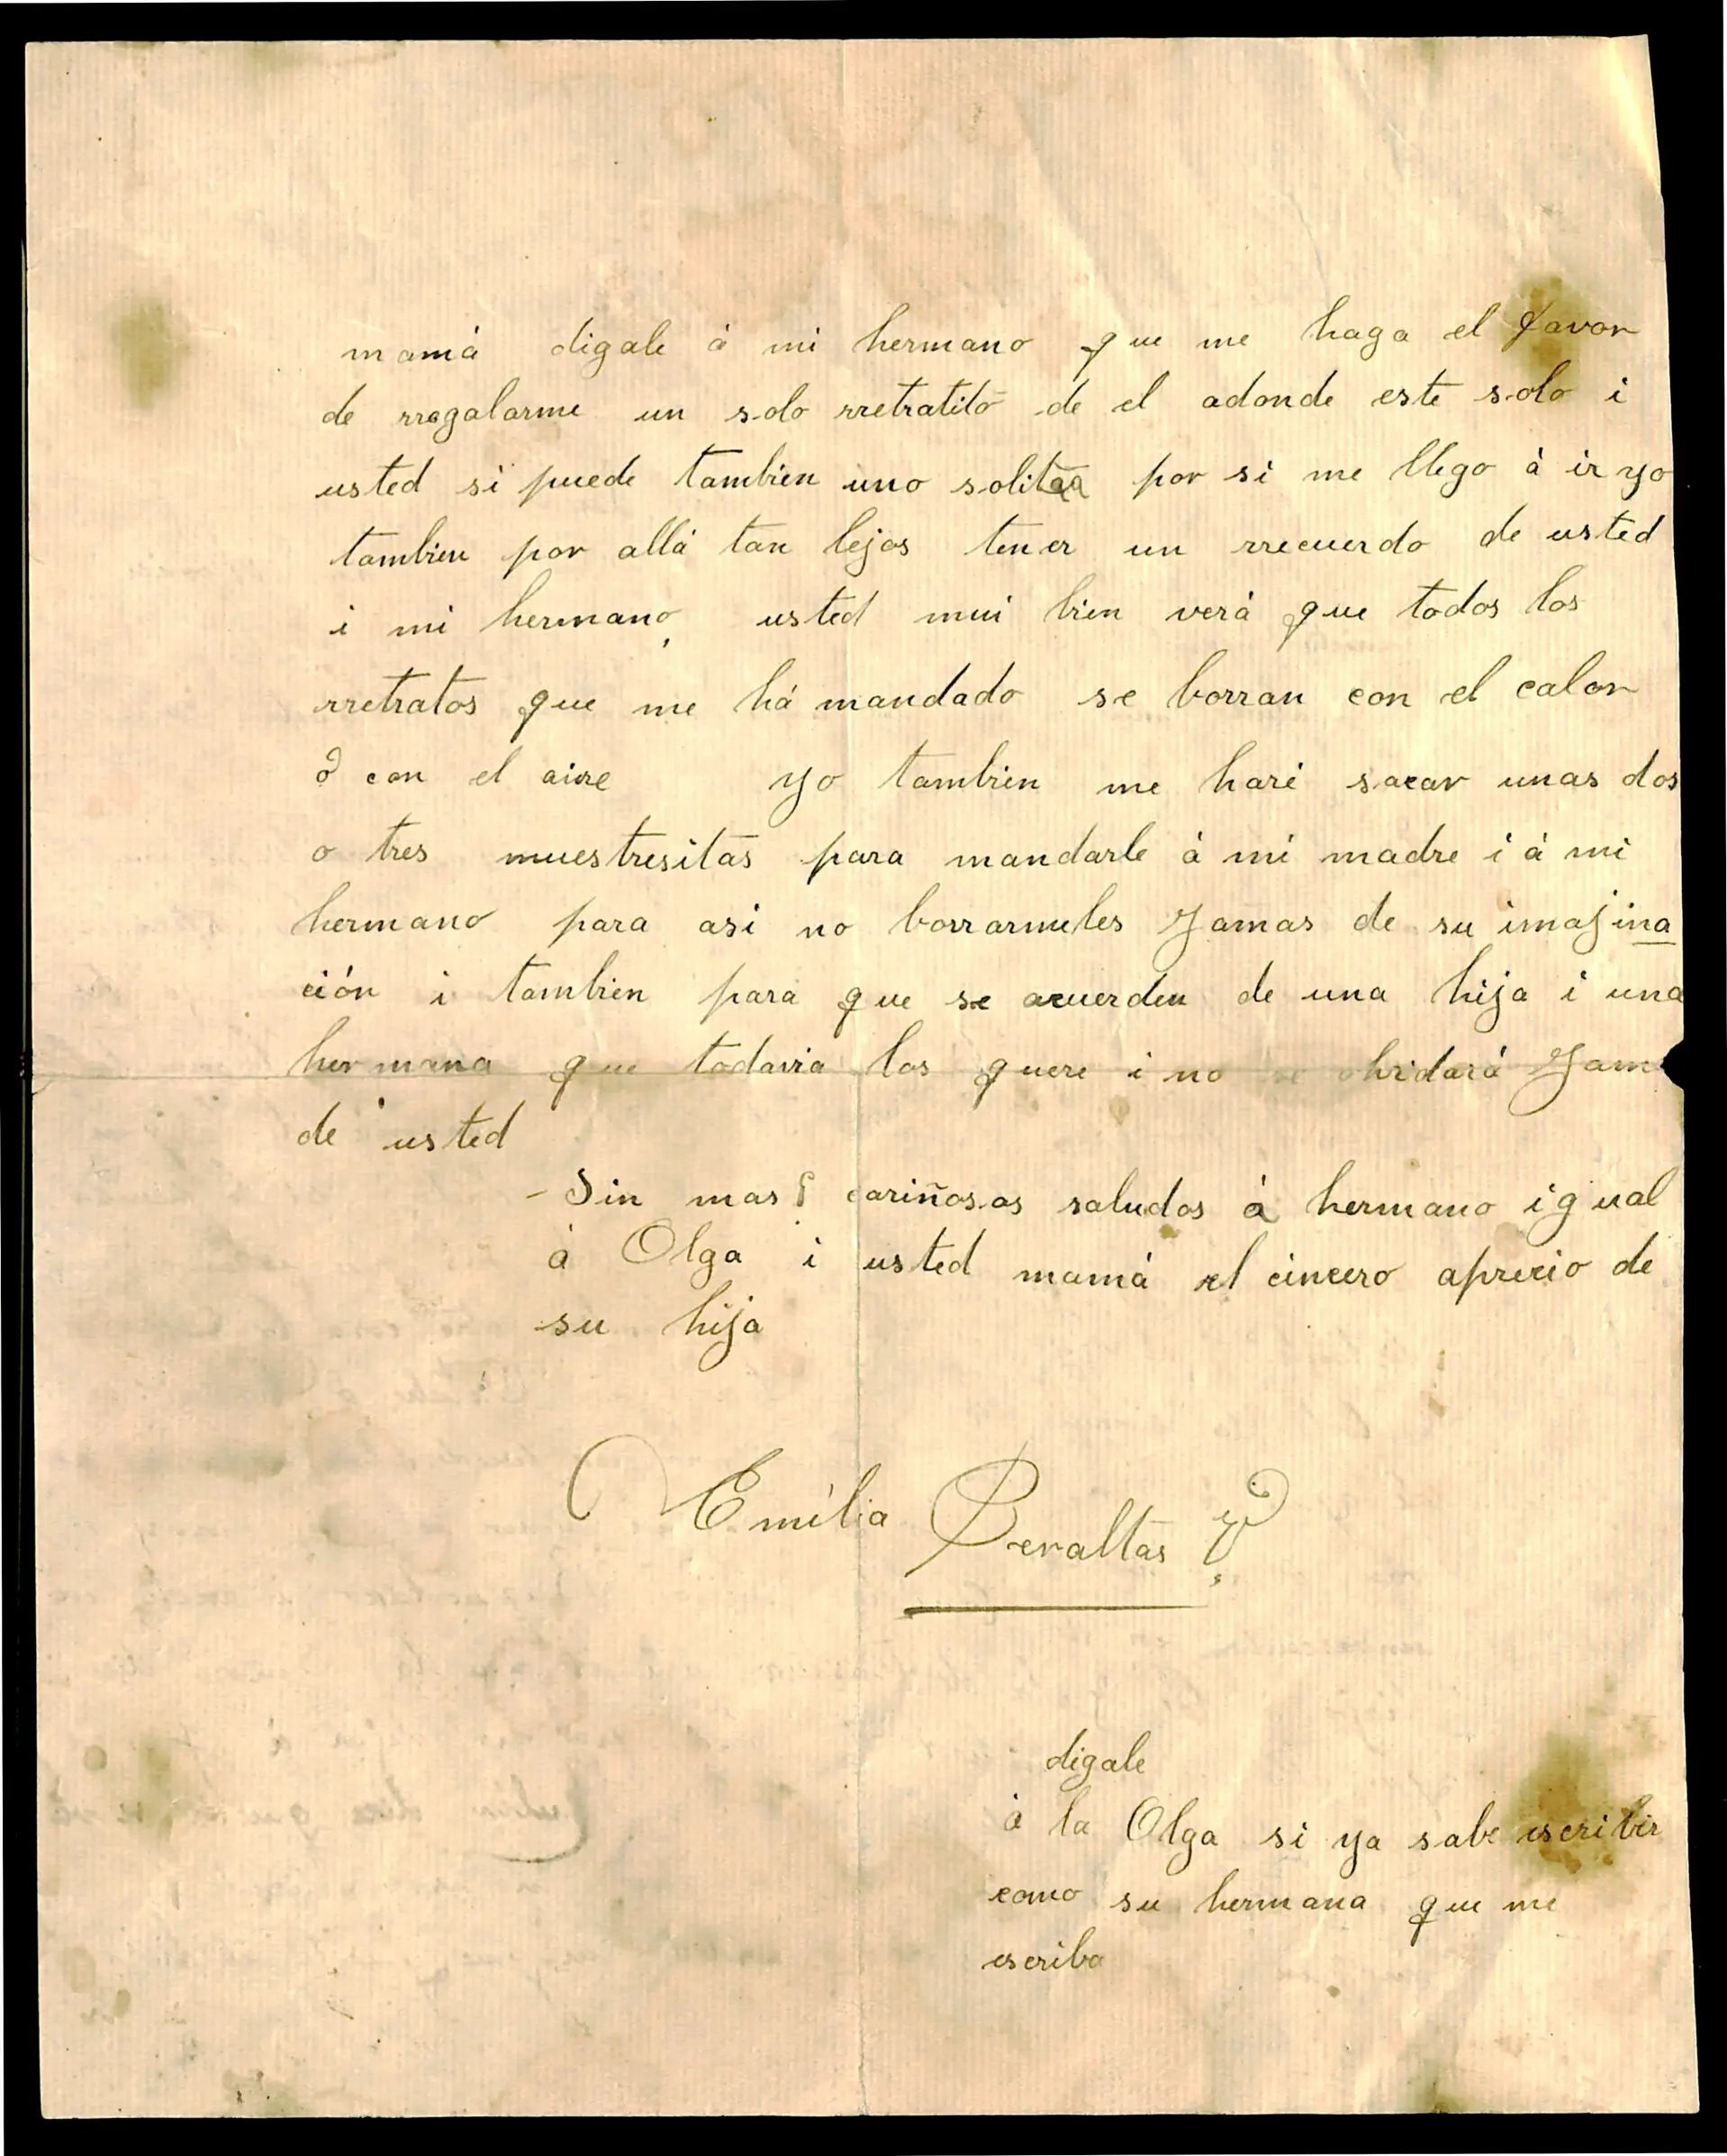 mamá digale á mi hermano que me haga el favor
de rregalarme un solo rretratito de el adonde este solo i
usted si puede tambien uno solitaa por si me llego á ir yo
tambien por allá tan lejos tener un rrecuerdo de usted
i mi hermano, usted mui bien verá que todos los
rretratos que me há mandado se borran con el calor
ó con el aire yo tambien me haré sacar unas dos
o tres muestresitas para mandarle á mi madre i á mi
hermano para asi no borrarmeles Jamas de su imajina
ción i tambien para que se acuerden de una hija i una
hermana que todavia los quere i no se olvidará Jam
de usted
- Sin mas cariñosos saludos á hermano igual
á Olga i usted mamá el cincero aprecio de
su hija
Emilia Peraltas V.
digale
á la Olga si ya sabe escribir
como su hermana que me
escriba